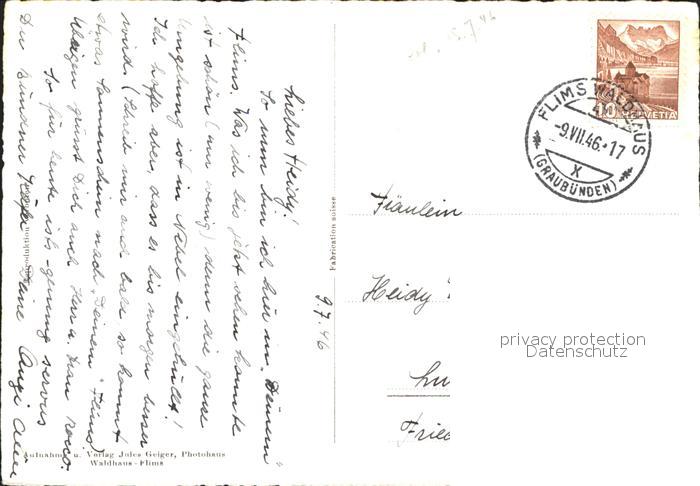 Liebes Heidy!
So nun bin ich hier in „Deinem"
Flims. Was ich bis jetzt sehen konnte
ist schön (nur wenig) denn die ganze
Umgebung ist in Nebel eingehüllt!
Ich hoffe aber, dass es bis morgen besser
wird. (Schreib mir auch bald so kommt
etwas Sonnenschein nach „Deinem" Flims)
Wegen grüsst Dich auch Herr u. Frau Rocco.
So für heute ists genug servus
Deine Angi
9.7.46
Fabrication suisse
Aufnahme u. Verlag Jules Geiger, Photohaus
Waldhaus-Flims
FLIMS WALDHAUS
-9.VII.46.-17
X
(GRAUBÜNDEN)
10 HELVETIA
Fräulein
Heidy
privacy protection
Datenschutz